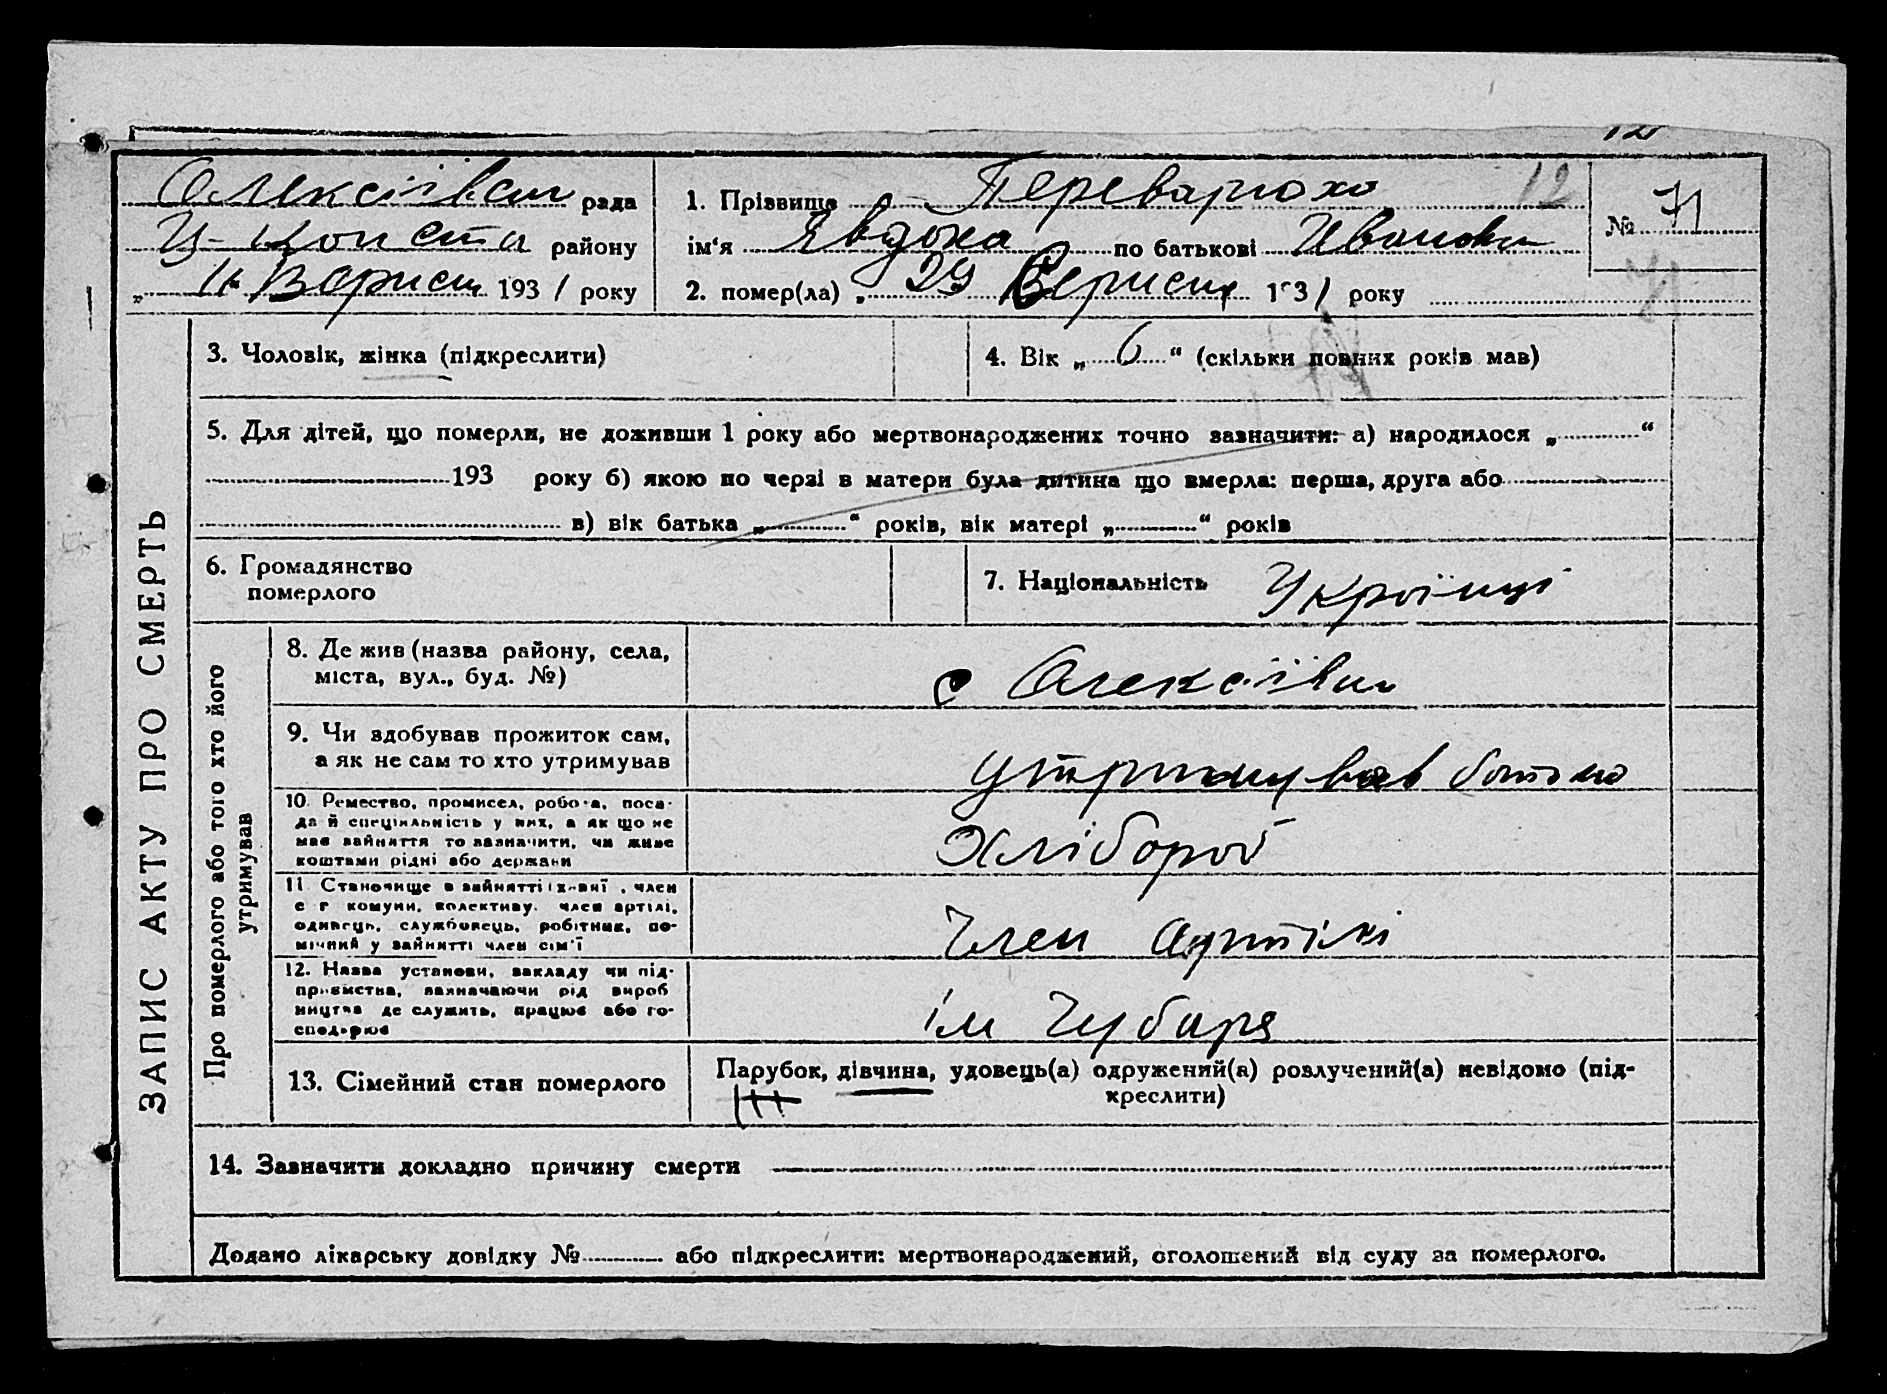 12
Олексіївсии рада
Ц-Конста району
„ 11 Верисни 1931 року
1. Прізвище Переварюха 12
№ 71
ім‘я Явдоха по батькові Ивановн
2. помер(ла) „ 29 Верисня 1931 року
71
3. Чоловік, жінка (підкреслити)
4. Вік „ 6 “ (скільки повних років мав)
5. Для дітей, що померли, не доживши 1 року або мертвонароджених точно зазначити: а) народилося „ “
193 року б) якою по черзі в матери була дитина що вмерла: перша, друга або
в) вік батька „ “ років, вік матері „ “ років
6. Громадянство
померлого
7. Національність Украінці
ЗАПИС АКТУ ПРО СМЕРТЬ
Про померлого або того хто його
утримував
8. Де жив (назва району, села,
міста, вул., буд. №)
с Олексіївка
9. Чи здобував прожиток сам,
а як не сам то хто утримував
утримував батько
10. Ремество, промисел, робота, поса-
да й спеціяльність у них, а як що не
має зайняття то зазначити, чи живе
коштами рідні або держави
Хлібороб
11. Становище в зайнятті , член
с г комуни, колективу, член артілі,
одинець, службовець, робітник, по-
мічний у зайнятті член сім'ї
Член Артілі
12. Назва установи, закладу чи під-
приємства, зазначаючи рід вироб
ництва де служить, працює або го-
сподарює
ім Чубаря
13. Сімейний стан померлого
Парубок, дівчина, удовець(а) одружений(а) розлучений(а) невідомо (під-
креслити)
14. Зазначити докладно причину смерти
Додано лікарську довідку № або підкреслити: мертвонароджений, оголошений від суду за померлого.